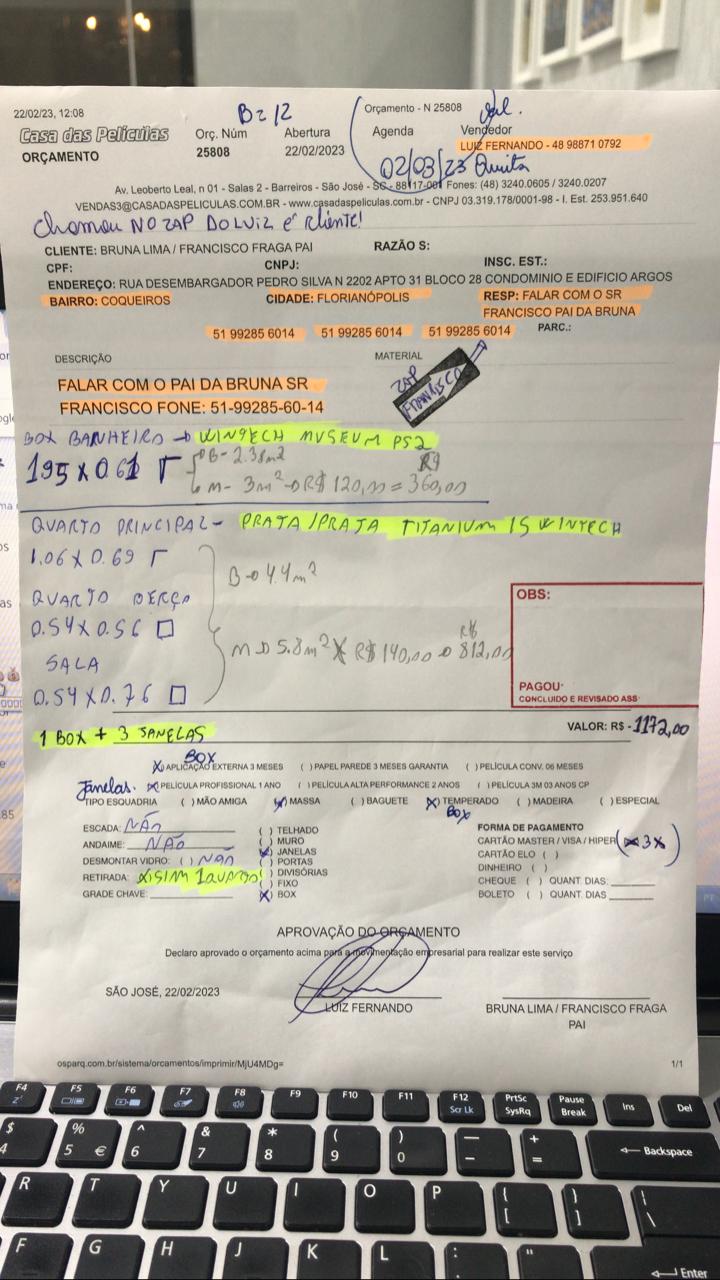 22/02/23, 12:08
B= 12
Orçamento - N 25808
Casa das Películas
ORÇAMENTO
Orç. Núm
25808
Abertura
22/02/2023
Agenda
02/03/23 Quinta
Vendedor
LUIZ FERNANDO - 48 98871 0792
Av. Leoberto Leal, n 01 - Salas 2 - Barreiros - São José - SC - 88117-001 Fones: (48) 3240.0605 / 3240.0207
VENDAS3@CASADASPELICULAS.COM.BR - www.casadaspeliculas.com.br - CNPJ 03.319.178/0001-98 - I. Est. 253.951.640
chamou NO ZAP DO LUIZ é cliente!
CLIENTE: BRUNA LIMA / FRANCISCO FRAGA PAI
RAZÃO S:
CPF:
CNPJ:
INSC. EST.:
ENDEREÇO: RUA DESEMBARGADOR PEDRO SILVA N 2202 APTO 31 BLOCO 28 CONDOMINIO E EDIFICIO ARGOS
BAIRRO: COQUEIROS
CIDADE: FLORIANÓPOLIS
RESP: FALAR COM O SR
FRANCISCO PAI DA BRUNA
51 99285 6014 51 99285 6014 51 99285 6014
PARC.:
DESCRIÇÃO
MATERIAL
ZAP
FRANCISCO
FALAR COM O PAI DA BRUNA SR
FRANCISCO FONE: 51-99285-60-14
BOX BANHEIRO → WINTECH MUSEUM PS2
195 x 0.61
B- 2.38m2
M- 3m2 → R$ 120,00 = 360,00
R$
QUARTO PRINCIPAL - PRATA/PRATA TITANIUM 15 WINTECH
1.06 x 0.69
B→ 4.4m2
QUARTO BERÇO
0.54 x 0.56
M→ 5.8m2 x R$ 140,00 → R$ 812,00
SALA
0.54 x 0.76
OBS:
PAGOU:
CONCLUIDO E REVISADO ASS
1 BOX + 3 JANELAS
VALOR: R$ - 1172,00
BOX
(x) APLICAÇÃO EXTERNA 3 MESES ( ) PAPEL PAREDE 3 MESES GARANTIA ( ) PELÍCULA CONV. 06 MESES
Janelas. (x) PELÍCULA PROFISSIONAL 1 ANO ( ) PELÍCULA ALTA PERFORMANCE 2 ANOS ( ) PELÍCULA 3M 03 ANOS CP
TIPO ESQUADRIA ( ) MÃO AMIGA (x) MASSA ( ) BAGUETE (x) TEMPERADO ( ) MADEIRA ( ) ESPECIAL
BOX
ESCADA: NÃO
ANDAIME: NÃO
DESMONTAR VIDRO: ( ) NÃO
RETIRADA: (x) SIM
GRADE CHAVE:
( ) TELHADO
( ) MURO
(x) JANELAS
( ) PORTAS
( ) DIVISÓRIAS
( ) FIXO
(x) BOX
FORMA DE PAGAMENTO
CARTÃO MASTER / VISA / HIPER (x 3x)
CARTÃO ELO ( )
DINHEIRO ( )
CHEQUE ( ) QUANT. DIAS:
BOLETO ( ) QUANT. DIAS
APROVAÇÃO DO ORÇAMENTO
Declaro aprovado o orçamento acima para a movimentação empresarial para realizar este serviço
SÃO JOSÉ, 22/02/2023
LUIZ FERNANDO
BRUNA LIMA / FRANCISCO FRAGA
PAI
osparq.com.br/sistema/orcamentos/imprimir/MjU4MDg=
1/1
F4 F5 F6 F7 F8 F9 F10 F11 F12 PrtSc Pause Ins Del
Scr Lk SysRq Break
$ % ^ & * ( ) — +
4 5 € 6 7 8 9 0 - = Backspace
R T Y U I O P { [ } ] | \
F G H J K L : " Enter